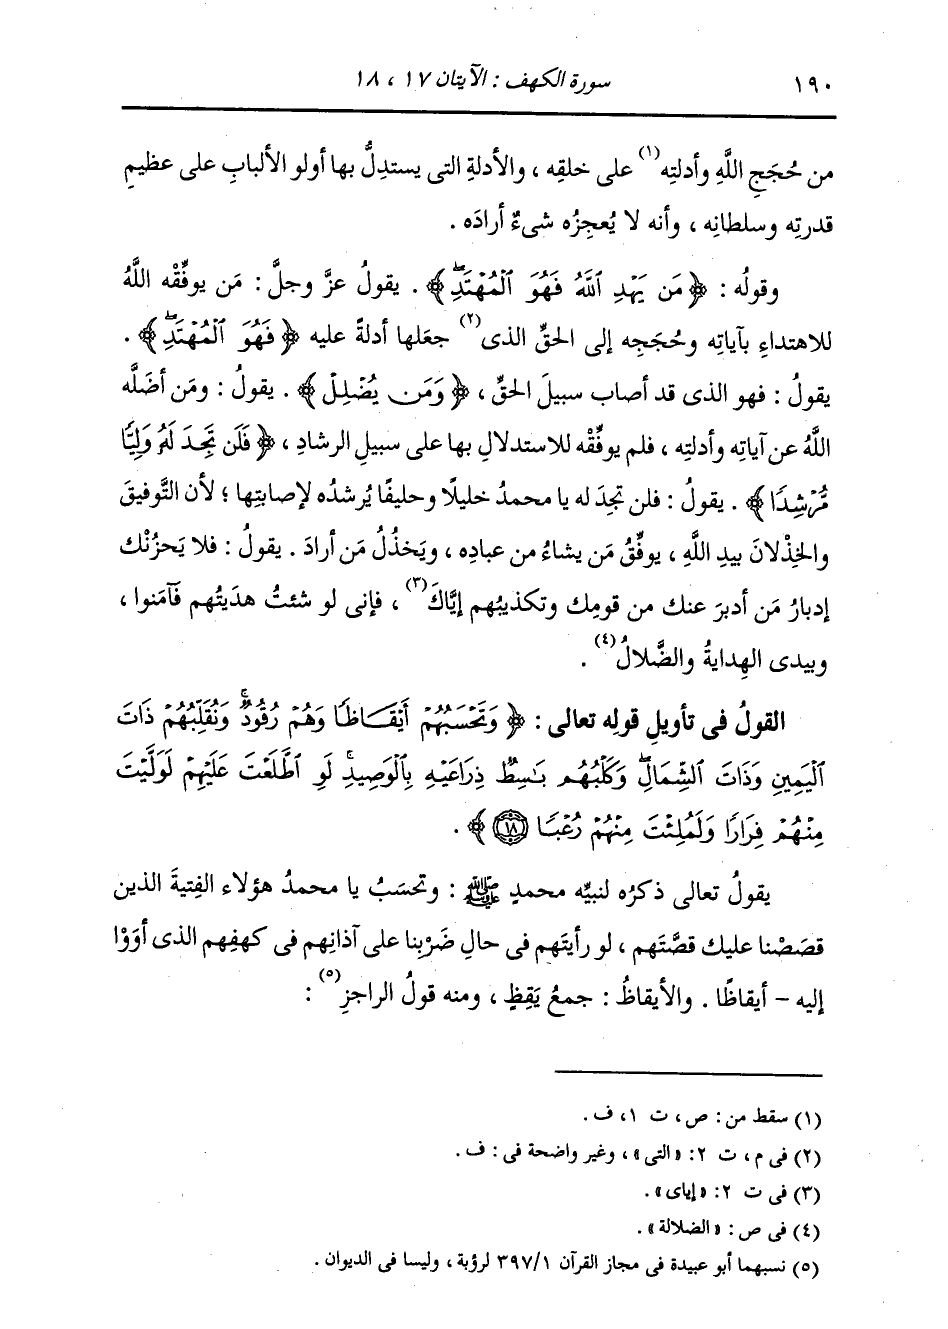 ١٩٠ سورة الكهف : الآيتان ١٧ ، ١٨
من حُجَجِ اللَّهِ وأدلتِه(١) على خلقِه ، والأدلةِ التى يستدِلُّ بها أولو الألبابِ على عظيمِ
قدرتِه وسلطانِه ، وأنه لا يُعجِزُه شىءٌ أرادَه .
وقولُه : ﴿ مَن يَهْدِ ٱللَّهُ فَهُوَ ٱلْمُهْتَدِۖ ﴾ . يقولُ عزَّ وجلَّ : مَن يوفِّقْه اللَّهُ
للاهتداءِ بآياتِه وحُجَجِه إلى الحقِّ الذى(٢) جعَلها أدلةً عليه ﴿ فَهُوَ ٱلْمُهْتَدِۖ ﴾ .
يقولُ : فهو الذى قد أصاب سبيلَ الحقِّ ، ﴿ وَمَن يُضْلِلْ ﴾ . يقولُ : ومَن أضَلَّه
اللَّهُ عن آياتِه وأدلتِه ، فلم يوفِّقْه للاستدلالِ بها على سبيلِ الرشادِ ، ﴿ فَلَن تَجِدَ لَهُۥ وَلِيًّا
مُّرْشِدًا ﴾ . يقولُ : فلن تجِدَ له يا محمدُ خليلًا وحليفًا يُرشدُه لإصابتِها ؛ لأن التَّوفيقَ
والخِذْلانَ بيدِ اللَّهِ ، يوفِّقُ مَن يشاءُ من عبادِه ، ويَخذُلُ مَن أرادَ . يقولُ : فلا يَحزُنْك
إدبارُ مَن أدبرَ عنك من قومِك وتكذيبُهم إيَّاكَ(٣) ، فإنى لو شئتُ هدَيتُهم فآمَنوا ،
وبيدى الهِدايةُ والضَّلالُ(٤) .
القولُ فى تأويلِ قولِه تعالى : ﴿ وَتَحْسَبُهُمْ أَيْقَاظًا وَهُمْ رُقُودٌۚ وَنُقَلِّبُهُمْ ذَاتَ
ٱلْيَمِينِ وَذَاتَ ٱلشِّمَالِۖ وَكَلْبُهُم بَٰسِطٌ ذِرَاعَيْهِ بِٱلْوَصِيدِۚ لَوِ ٱطَّلَعْتَ عَلَيْهِمْ لَوَلَّيْتَ
مِنْهُمْ فِرَارًا وَلَمُلِئْتَ مِنْهُمْ رُعْبًا ١٨ ﴾ .
يقولُ تعالى ذكرُه لنبيِّه محمدٍ ﷺ : وتحسَبُ يا محمدُ هؤلاء الفِتيةَ الذين
قصَصْنا عليك قصَّتَهم ، لو رأيتَهم فى حالِ ضَرْبِنا على آذانِهم فى كهفِهم الذى أوَوْا
إليه - أيقاظًا . والأيقاظُ : جمعُ يَقِظٍ ، ومنه قولُ الراجزِ(٥) :
(١) سقط من : ص ، ت ١، ف .
(٢) فى م ، ت ٢: « التى » ، وغير واضحة فى : ف .
(٣) فى ت ٢: « إياى » .
(٤) فى ص : « الضلالة » .
(٥) نسبهما أبو عبيدة فى مجاز القرآن ٣٩٧/١ لرؤبة ، وليسا فى الديوان .